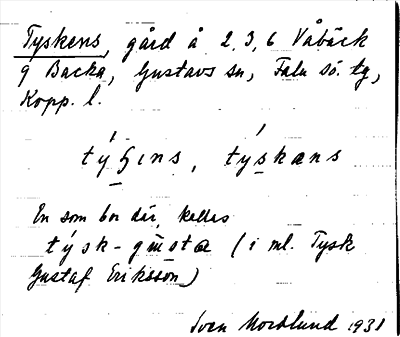 Tyskens, gård å 2, 3, 6 Våbäck
9 Backa, Gustavs sn, Falu sö. tg,
Kopp. l.
týʂins, týskans
En som bor där, kallas
týsk-gùsta (i ml. Tysk
Gustaf Eriksson)
Sven Nordlund 1931